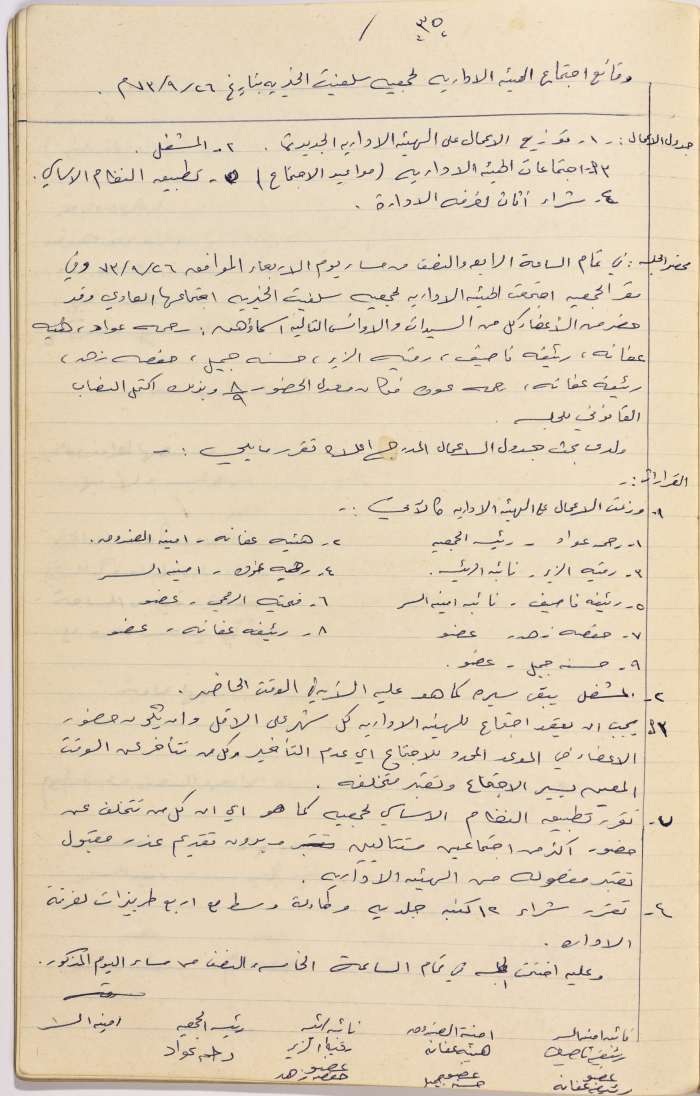 ٣٥
وقائع اجتماع الهيئه الاداريه لجمعيه سلفيت الخيريه بتاريخ ٢٦/٩/٧٣م.
جدول الاعمال :- ١- توزيع الاعمال على الهيئه الاداريه الجديدة. ٢- المشغل.
٣- اجتماعات الهيئه الاداريه (مواعيد الاجتماع) - تطبيق النظام الاساسي.
٤- شراء أثاث لغرفه الادارة.
محضر الجلسه: في تمام الساعة الرابعه والنصف من مساء يوم الاربعاء الموافق ٢٦/٩/٧٣ وفي
مقر الجمعيه اجتمعت الهيئه الاداريه لجمعيه سلفيت الخيريه اجتماعها العادي وقد
حضر من الأعضاء كل من السيدات والاوانس التاليه اسماؤهن: رحمه عواد، هنيه
عفانه، رئيفه ناصيف، رقيه الزير، حسنه جميل، حفصه زهد،
رئيفة عفانه، فكان معدل الحضور ٨/٩ وبذلك اكتمل النصاب
القانوني للجلسه.
ولدى بحث جدول الاعمال المدرج اعلاه تقرر مايلي :-
القرارات :-
١- وزعت الاعمال على الهيئه الاداريه كالآتي :-
١- رحمه عواد - رئيسة الجمعيه ٢- هنيه عفانه - امينه الصندوق.
٣- رقيه الزير - نائبه الرئيسه. ٤- - امينه السر
٥- رئيفه ناصيف - نائبه امينه السر ٦- - عضو
٧- حفصه زهد عضو ٨- رئيفه عفانه - عضو
٩- حسنه جميل - عضو.
٢- المشغل يبقى سيره كما هو عليه الآن في الوقت الحاضر.
٣- يجب ان يعقد اجتماع للهيئه الاداريه كل شهر على الاقل وان يكون حضور
الاعضاء في الموعد المحدد للاجتماع اي عدم التأخير وكل من تتأخر عن الوقت
المعين يسير الاجتماع وتعتبر متخلفه.
تقرر تطبيق النظام الاساسي لجمعيه كما هو اي ان كل من تتخلف عن
حضور اكثر من اجتماعين متتاليين وبدون تقديم عذر مقبول
تعتبر مفصوله من الهيئه الاداريه.
٤- تقرر شراء ١٢ كنبه جلديه وطاولة وسط مع اربع طربيزات لغرفة
الاداره.
وعليه اختتمت الجلسه في تمام الساعة الخامسه والنصف من مساء اليوم المذكور.
نائبه امينه السر امينة الصندوق نائبه الرئيسه رئيسه الجمعيه امينه السر
رئيفه ناصيف هنيه عفانه رقيه الزير رحمه عواد
عضو عضو عضو
رئيفه عفانه حسنه جميل حفصه زهد